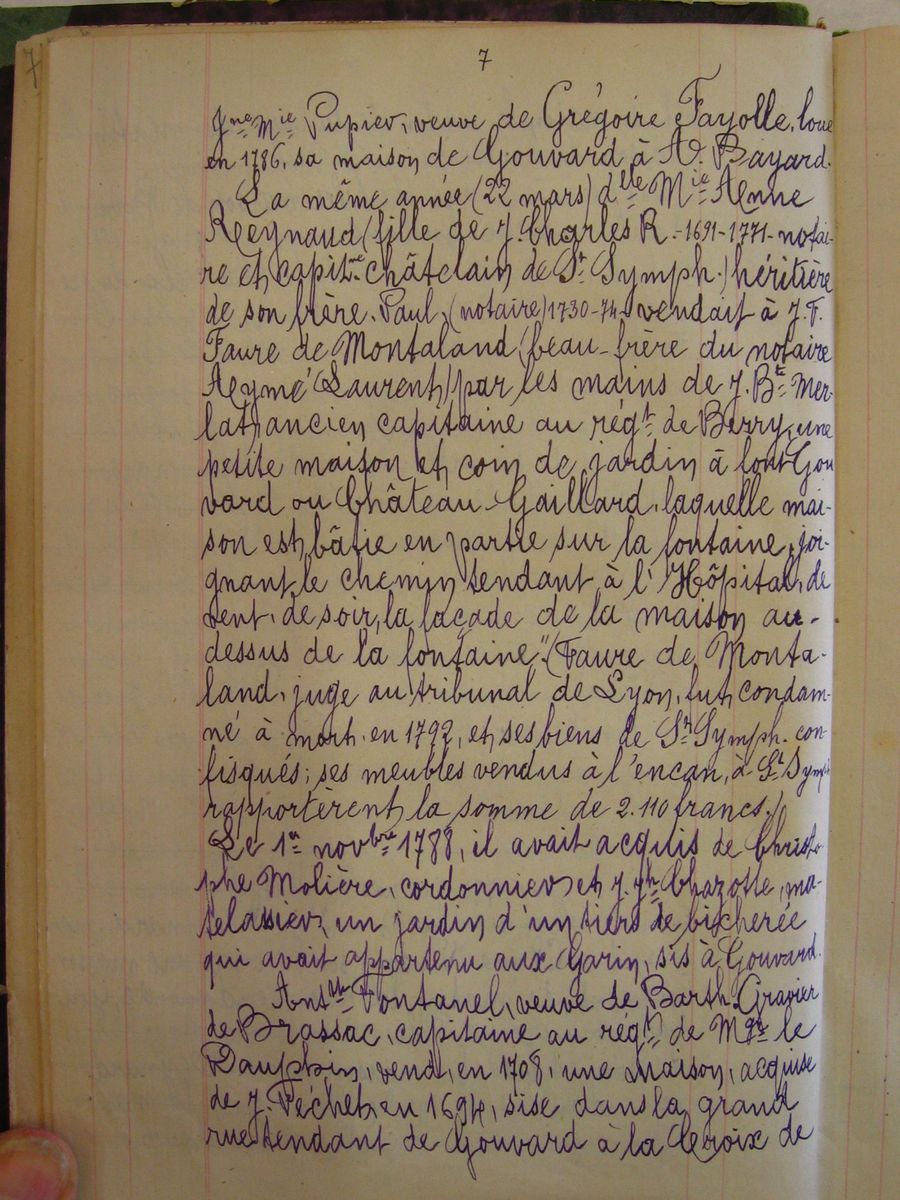 7
7
Jne Mie Pupier, veuve de Grégoire Fayolle, loue
en 1786, sa maison de Gouvard à A. Bayard.
La même année (22 mars) dlle Mie Anne
Reynaud (fille de J. Charles R. - 1691-1771 - notai-
re et capitne châtelain de St Symph.) héritière
de son frère, Paul, (notaire) 1730-74, vendait à J. F.
Faure de Montaland (beau-frère du notaire
Aymé Laurent) par les mains de J. Bte Mer-
lat, ancien capitaine au régt de Berry, une
petite maison et coin de jardin à font Gou
vard ou Château-Gaillard, laquelle mai-
son est bâtie en partie sur la fontaine, joi-
gnant le chemin tendant à l'Hôpital, de
vent, de soir, la façade de la maison au-
dessus de la fontaine". (Faure de Monta-
land, juge au tribunal de Lyon, fut condam-
né à mort en 1792, et ses biens de St Symph. con-
fisqués; ses meubles vendus à l'encan, à St Symph
rapportèrent la somme de 2.110 francs.)
Le 1er novbre 1788, il avait acquis de Christo-
phe Molière, cordonnier et J. Jh Chazotte, ma-
telassier, un jardin d'un tiers de bicherée
qui avait appartenu aux Garin, sis à Gouvard.
Anttte Fontanel, veuve de Barth. Gravier
de Brassac, capitaine au régt de Mgr le
Dauphin, vend, en 1708, une maison, acquise
de J. Péchet, en 1694, sise dans la grand
rue tendant de Gouvard à la Croix de